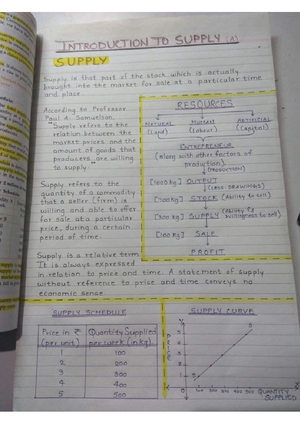 INTRODUCTION TO SUPPLY (A)
SUPPLY
Supply is that part of the stock which is actually
brought into the market for sale at a particular time
and place.
According to Professor
Paul A. Samuelson,
"Supply refers to the
relation between the
market prices and the
amount of goods that
producers are willing
to supply."
Supply refers to the
quantity of a commodity
that a seller (firm) is
willing and able to offer
for sale at a particular
price, during a certain
period of time.
RESOURCES
NATURAL HUMAN ARTIFICIAL
(Land) (Labour) (Capital)
ENTREPRENEUR
(along with other factors of
production)
(PRODUCTION)
[1000kg] OUTPUT
(LESS DRAWINGS)
STOCK (Ability to sell)
SUPPLY (Ability & willingness to sell)
SALE
PROFIT
Supply is a relative term
It is always expressed
in relation to price and time. A statement of supply
without reference to price and time conveys no
economic sense.
SUPPLY SCHEDULE
Price in ₹ Quantity Supplied
(per unit) per week (in kg)
1 100
2 200
3 300
4 400
5 500
SUPPLY CURVE
Y
5
4
3
2
1
PRICE
S
S
0 100 200 300 400 500 X
QUANTITY
SUPPLIED